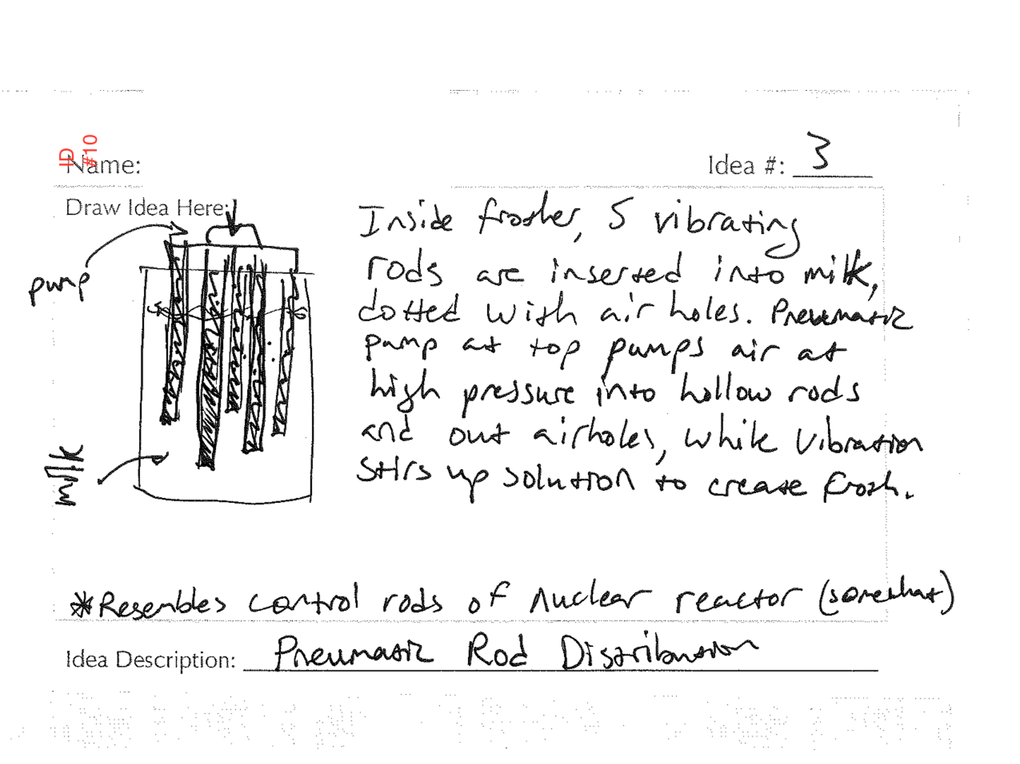 ID
#10
Name:
Idea #: 3
Draw Idea Here:
pump
milk
Inside frother, 5 vibrating
rods are inserted into milk,
dotted with air holes. Pneumatic
pump at top pumps air at
high pressure into hollow rods
and out airholes, while vibration
stirs up solution to create froth.
*Resembles control rods of nuclear reactor (somewhat)
Idea Description: Pneumatic Rod Distribution